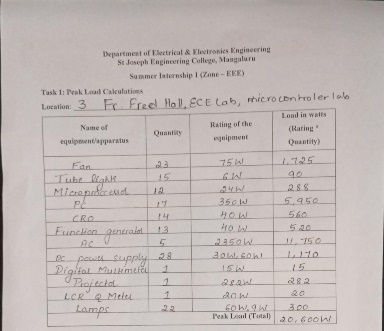 Department of Electrical & Electronics Engineering
St Joseph Engineering College, Mangaluru
Summer Internship 1 (Zone – EEE)
Task 1: Peak Load Calculations
Location: 3 Fr. Fred Hall, ECE Lab, microcontroler lab
Name of equipment/apparatus Quantity Rating of the equipment Load in watts (Rating * Quantity)
Fan 23 75W 1,725
Tube light 15 6W 90
Microprocessor 12 24W 288
PC 17 350W 5,950
CRO 14 40W 560
Function generator 13 40W 520
AC 5 2350W 11,750
DC power supply 28 30W, 60W 1,170
Digital Multimeter 1 15W 15
Projector 1 282W 282
LCR Q Meter 1 20W 20
Lamps 22 60W, 9W 300
Peak Load (Total) 20,600W